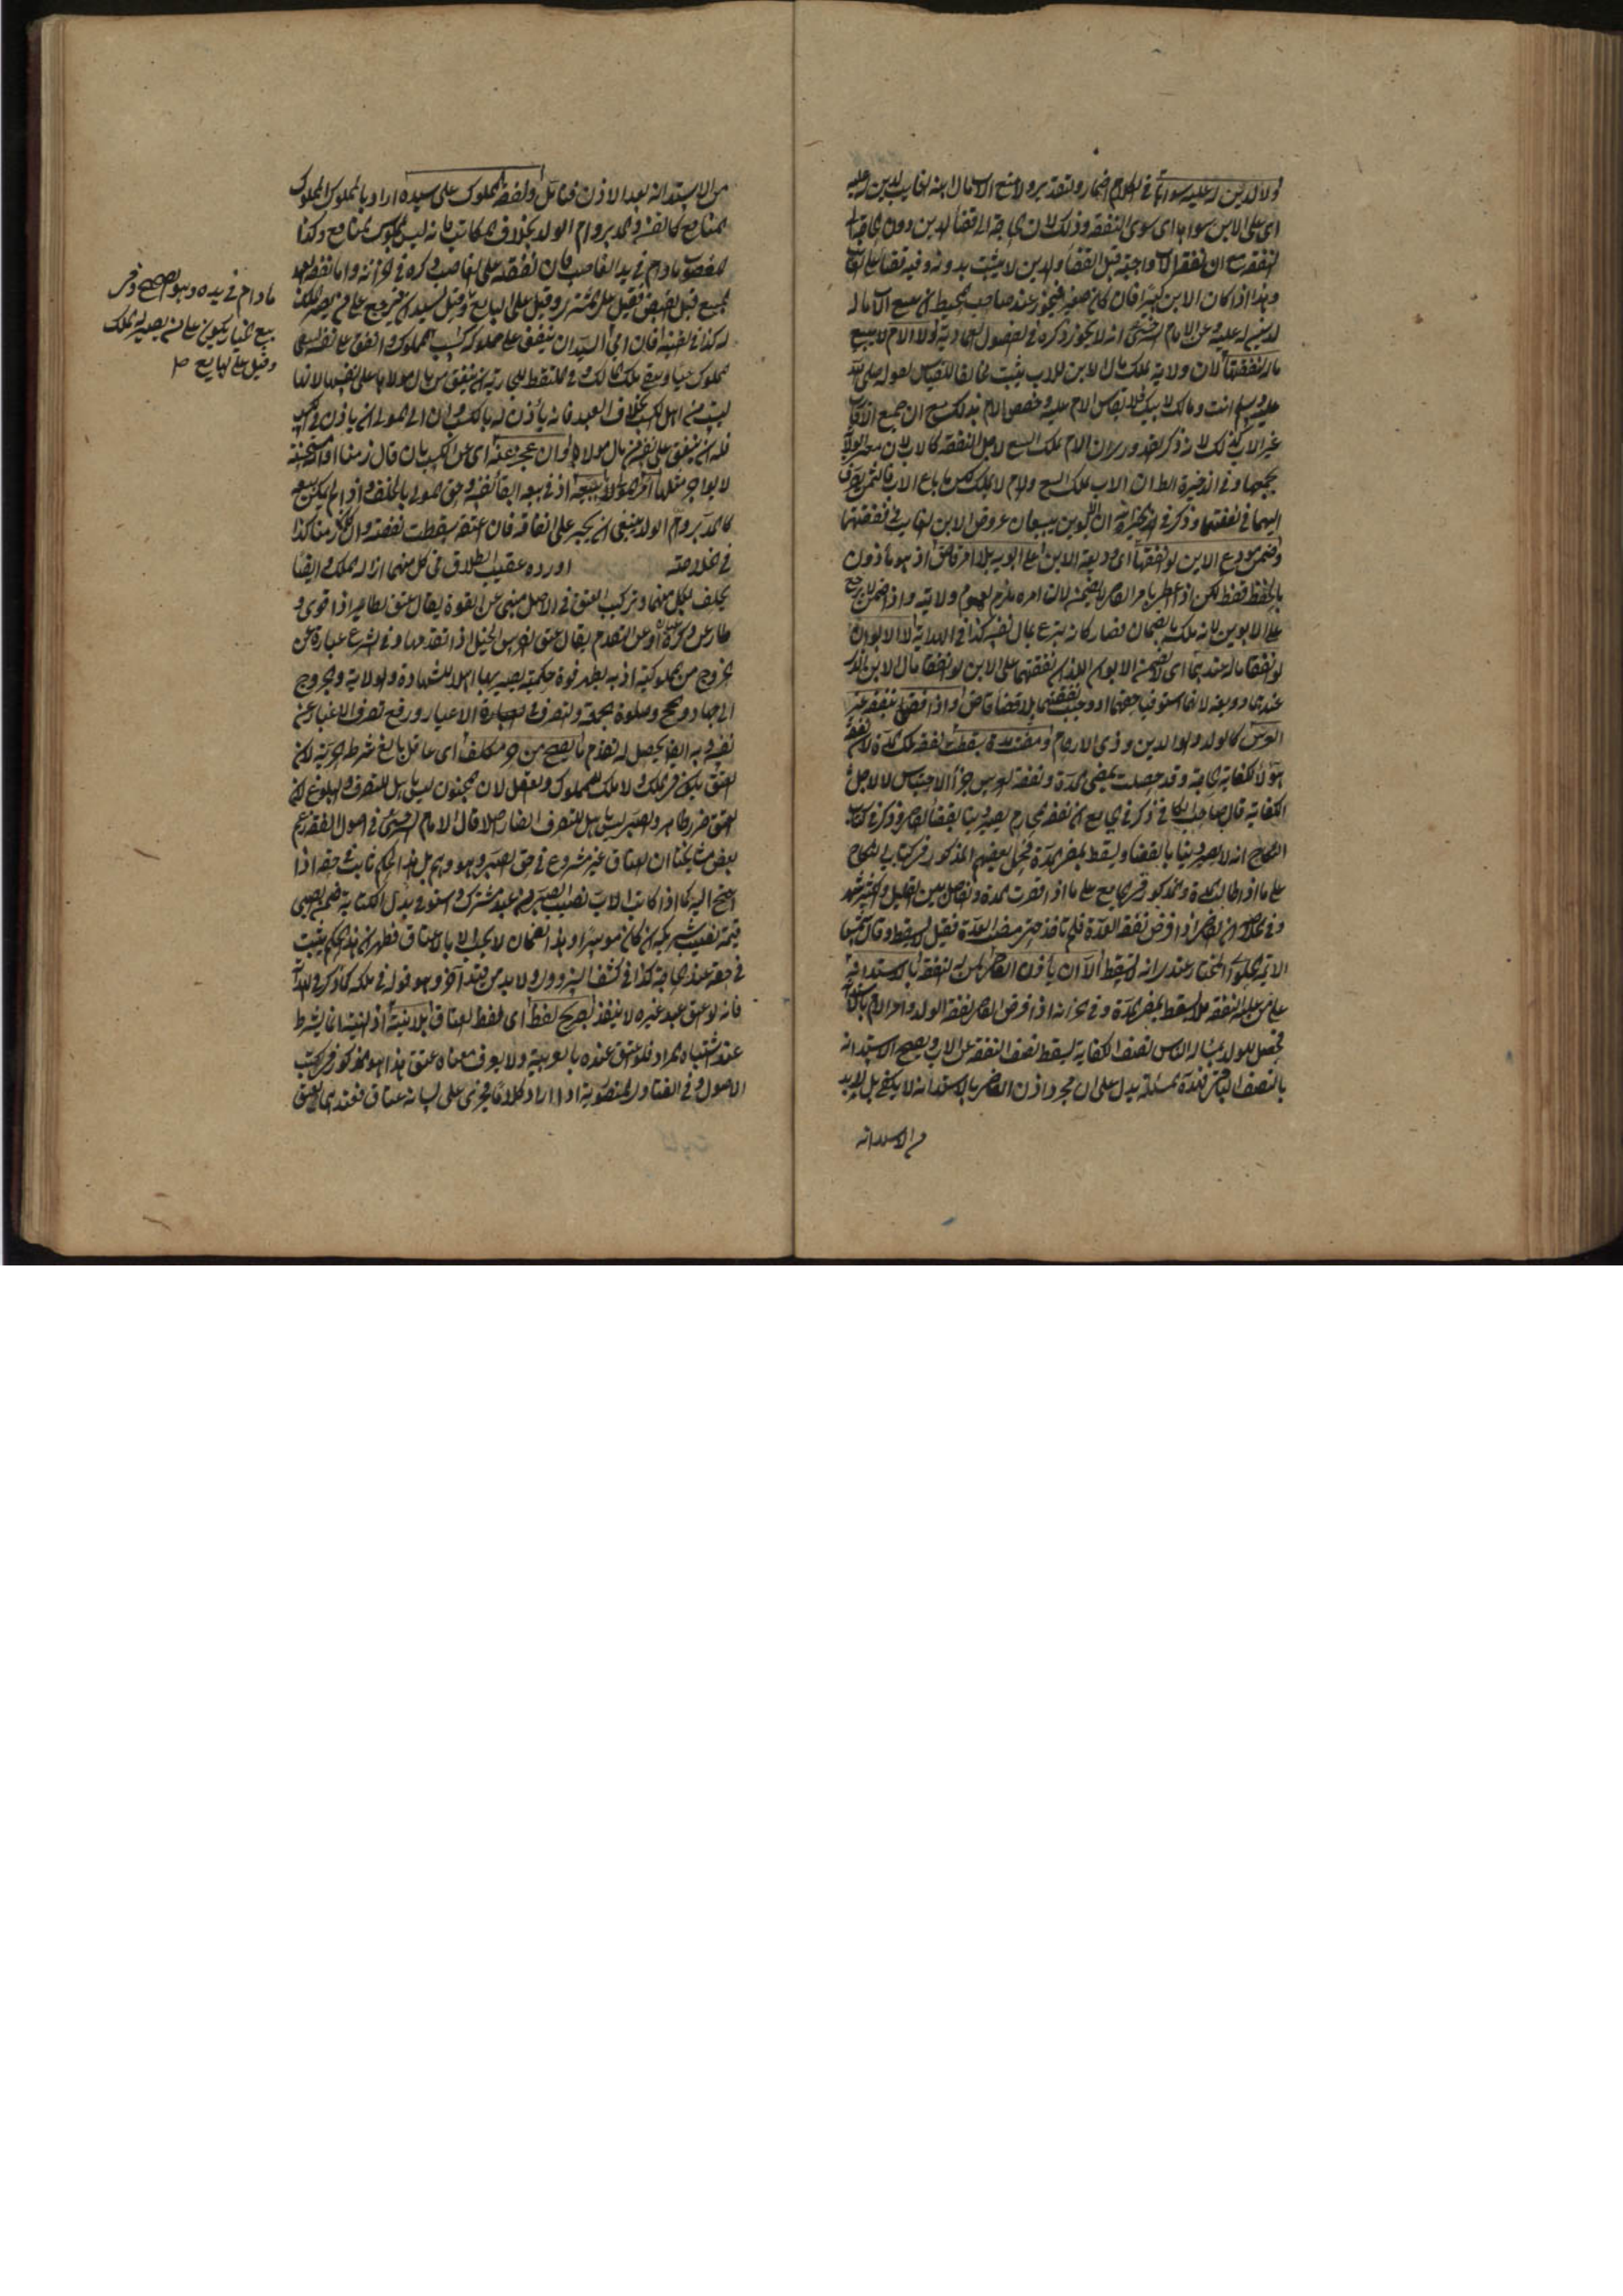 ولا لدين له عليه سواها في الكلام اضمار وتقدير ولا منع الاب مال ابنه الغايب لدين له عليه
اي على الابن سواها اي سوى النفقة وذلك لان الحاجة الى قضاء الدين دون الحاجة الى
النفقة مع ان نفقة الاب واجبة قبل القضاء والدين لا يثبت بدونه وفيه قضاء على الغايب
وهذا اذا كان الابن كبيرا فان كان صغيرا فيجوز عند صاحب المحيط ان يبيع الاب ماله
لدين له عليه وعن الامام السرخسي انه لا يجوز ذكره في الفصول العمادية ولا الام لا تبيع
ماله لنفقتها لان ولاية تملك مال الابن للاب يثبت مخالفا للقياس لقوله صلى الله
عليه وسلم انت ومالك لابيك فلا يقاس الام عليه وخصص الام بذلك مع ان جميع الاقارب
غير الاب كذلك لانه ذكر القدوري ان الام تملك البيع لاجل النفقة كالاب لان معنى الولاد
يجمعها وفي الذخيرة الظاهر ان الاب يملك البيع والام لا تملك لكن ما باع الاب فالثمن يصرف
اليهما في نفقتهما وذكر في الاقضية ان الابوين يبيعان عروض الابن الغايب في نفقتهما
وضمن مودع الابن لو انفقها اي وديعة الابن على ابويه بلا امر قاض اذ هو مأذون
بالحفظ فقط لكن اذا اعطى بامر القاضي لا يضمن لان امره ملزم لعموم ولايته واذا ضمن لا يرجع
على الابوين لانه ملكه بالضمان فصار كانه تبرع بمال نفسه كذا في الهداية لا الابوان
لو انفقا ماله عندهما اي لا يضمن الابوان اللذان نفقتهما على الابن لو انفقا مال الابن الذي
عندهما وديعة لانهما استوفيا حقهما اذ وجب نفقتهما بلا قضاء قاض واذا قضي بنفقة غير
العرس كالولد والوالدين وذي الارحام ومضت مدة سقطت نفقة تلك المدة لان نفقة
هؤلاء لكفاية الحاجة وقد حصلت بمضي المدة ونفقة العرس جزاء الاحتباس لا لاجل
الكفاية قال صاحب الكافي ذكر في الجامع ان نفقة المحارم يصير دينا بقضاء القاضي وذكر في كتاب
النكاح انه لا يصير دينا بالقضاء ويسقط بمضي المدة فحمل بعضهم المذكور في كتاب النكاح
على ما اذا طالت المدة والمذكور في الجامع على ما اذا قصرت المدة والفاصل بين القليل والكثير شهر
وفي الخلاصة ان القاضي اذا فرض نفقة العدة فلم تاخذ حتى مضت العدة فقيل لا يسقط وقال شمس
الائمة الحلواني المختار عندي انه لا يسقط الا ان يأذن القاضي لمن له النفقة بالاستدانة
على من عليه النفقة فلا يسقط بمضي المدة وفي الخزانة اذا فرض القاضي نفقة الولد وامر الام بالاستدانة
فحصل للولد بمسألة الناس نصف الكفاية يسقط نصف النفقة عن الاب ويصح الاستدانة
بالنصف الباقي فهذه المسئلة يدل على ان مجرد اذن القاضي بالاستدانة لا يكفي بل لا بد
من الاستدانة
من الاستدانة بعد الاذن فتأمل ونفقة المملوك على سيده اراد بالمملوك المملوك
المنافع كالقن والمدبر وام الولد بخلاف المكاتب فانه ليس المملوك المنافع وكذا
المغصوب ما دام في يد الغاصب فان نفقته على الغاصب ذكره في الخزانة واما نفقة العبد
المبيع قبل القبض فقيل على المشتري وقيل على البايع وقيل
له كذا في القنية فان ابى السيد ان ينفق على مملوكه كسب المملوك وانفق على نفسه ليبقى
المملوك حيا ويبقى ملك المالك وفي الملتقط للجارية ان تنفق من مال مولاها على نفسها لانها
ليست من اهل الكسب بخلاف العبد فانه يأذن له بالكسب وان ابى المولى ان ياذن في الكسب
فله ان ينفق على نفسه من مال مولاه وان عجز عنه اي عن الكسب بان كان زمنا او امة حسنة
لا يؤاجر مثلها امر المولى ببيعه اذ في بيعه ابقاء نفسه وحق المولى بالخلف واذا لم يمكن بيعه
كالمدبر وام الولد ينبغي ان يجبر على انفاقه فان اعتقه سقطت نفقته وان كان زمنا كذا
في الخلاصة اورده عقيب الطلاق في كل منهما ازالة الملك وايضا
يحلف بكل منهما وتركيب العتق في الاصل ينبئ عن القوة يقال عتق الطاير اذا قوي و
طار عن وكره او عن التقدم يقال عتق الفرس الخيل اذا تقدمها وفي الشرع عبارة عن
الخروج من المملوكية اذ به يظهر قوة حكمية يصير بها اهلا للشهادة والولاية والخروج
الى الجهاد والحج وصلوة الجمعة والتصرف في الاعيار ورفع تصرف الاغيار عن
نفسه وبه ايضا يحصل له تقدم ما يصح من حر مكلف اي عاقل بالغ شرط الحرية لان
العتق يكون في الملك ولا ملك للمملوك والعقل لان المجنون ليس باهل للتصرف والبلوغ لان
العتق ضرر ظاهر والصبي ليس باهل للتصرف الضار اصلا قال الامام السرخسي في اصول الفقه زعم
بعض مشايخنا ان العتاق غير مشروع في حق الصبي وهو وهم بل هذا الحكم ثابت في حقه اذا
احتيج اليه كما اذا كاتب الاب نصيب الصبي من عبد مشترك واستوفى بدل الكتابة ضمن الصبي
قيمة نصيب شريكه ان كان موسرا وهذا الضمان لا يجب الا بالاعتاق فظهر ان هذا الحكم يثبت
في حقه عند الحاجة كذا في كشف البزدوي ولا بد من قيد آخر وهو قوله في ملكه كما ذكر في الهداية
فانه لو اعتق عبد غيره لا ينفذ بصريح لفظ اي لفظ العتاق بلا نية اذ النية انما يشترط
عند اشتباه المراد فلو اعتق عنده بالعربية ولا يعرف معناه عتق هذا هو المذكور في كتب
الاصول وفي الفتاوى المنصورية اذا اراد كلاما فجرى على لسانه عتاق فعندهما يعتق
ما دام في يده وهو الصحيح وفي
بيع الخيار يكون على من يصير له الملك
وقيل على البايع صح